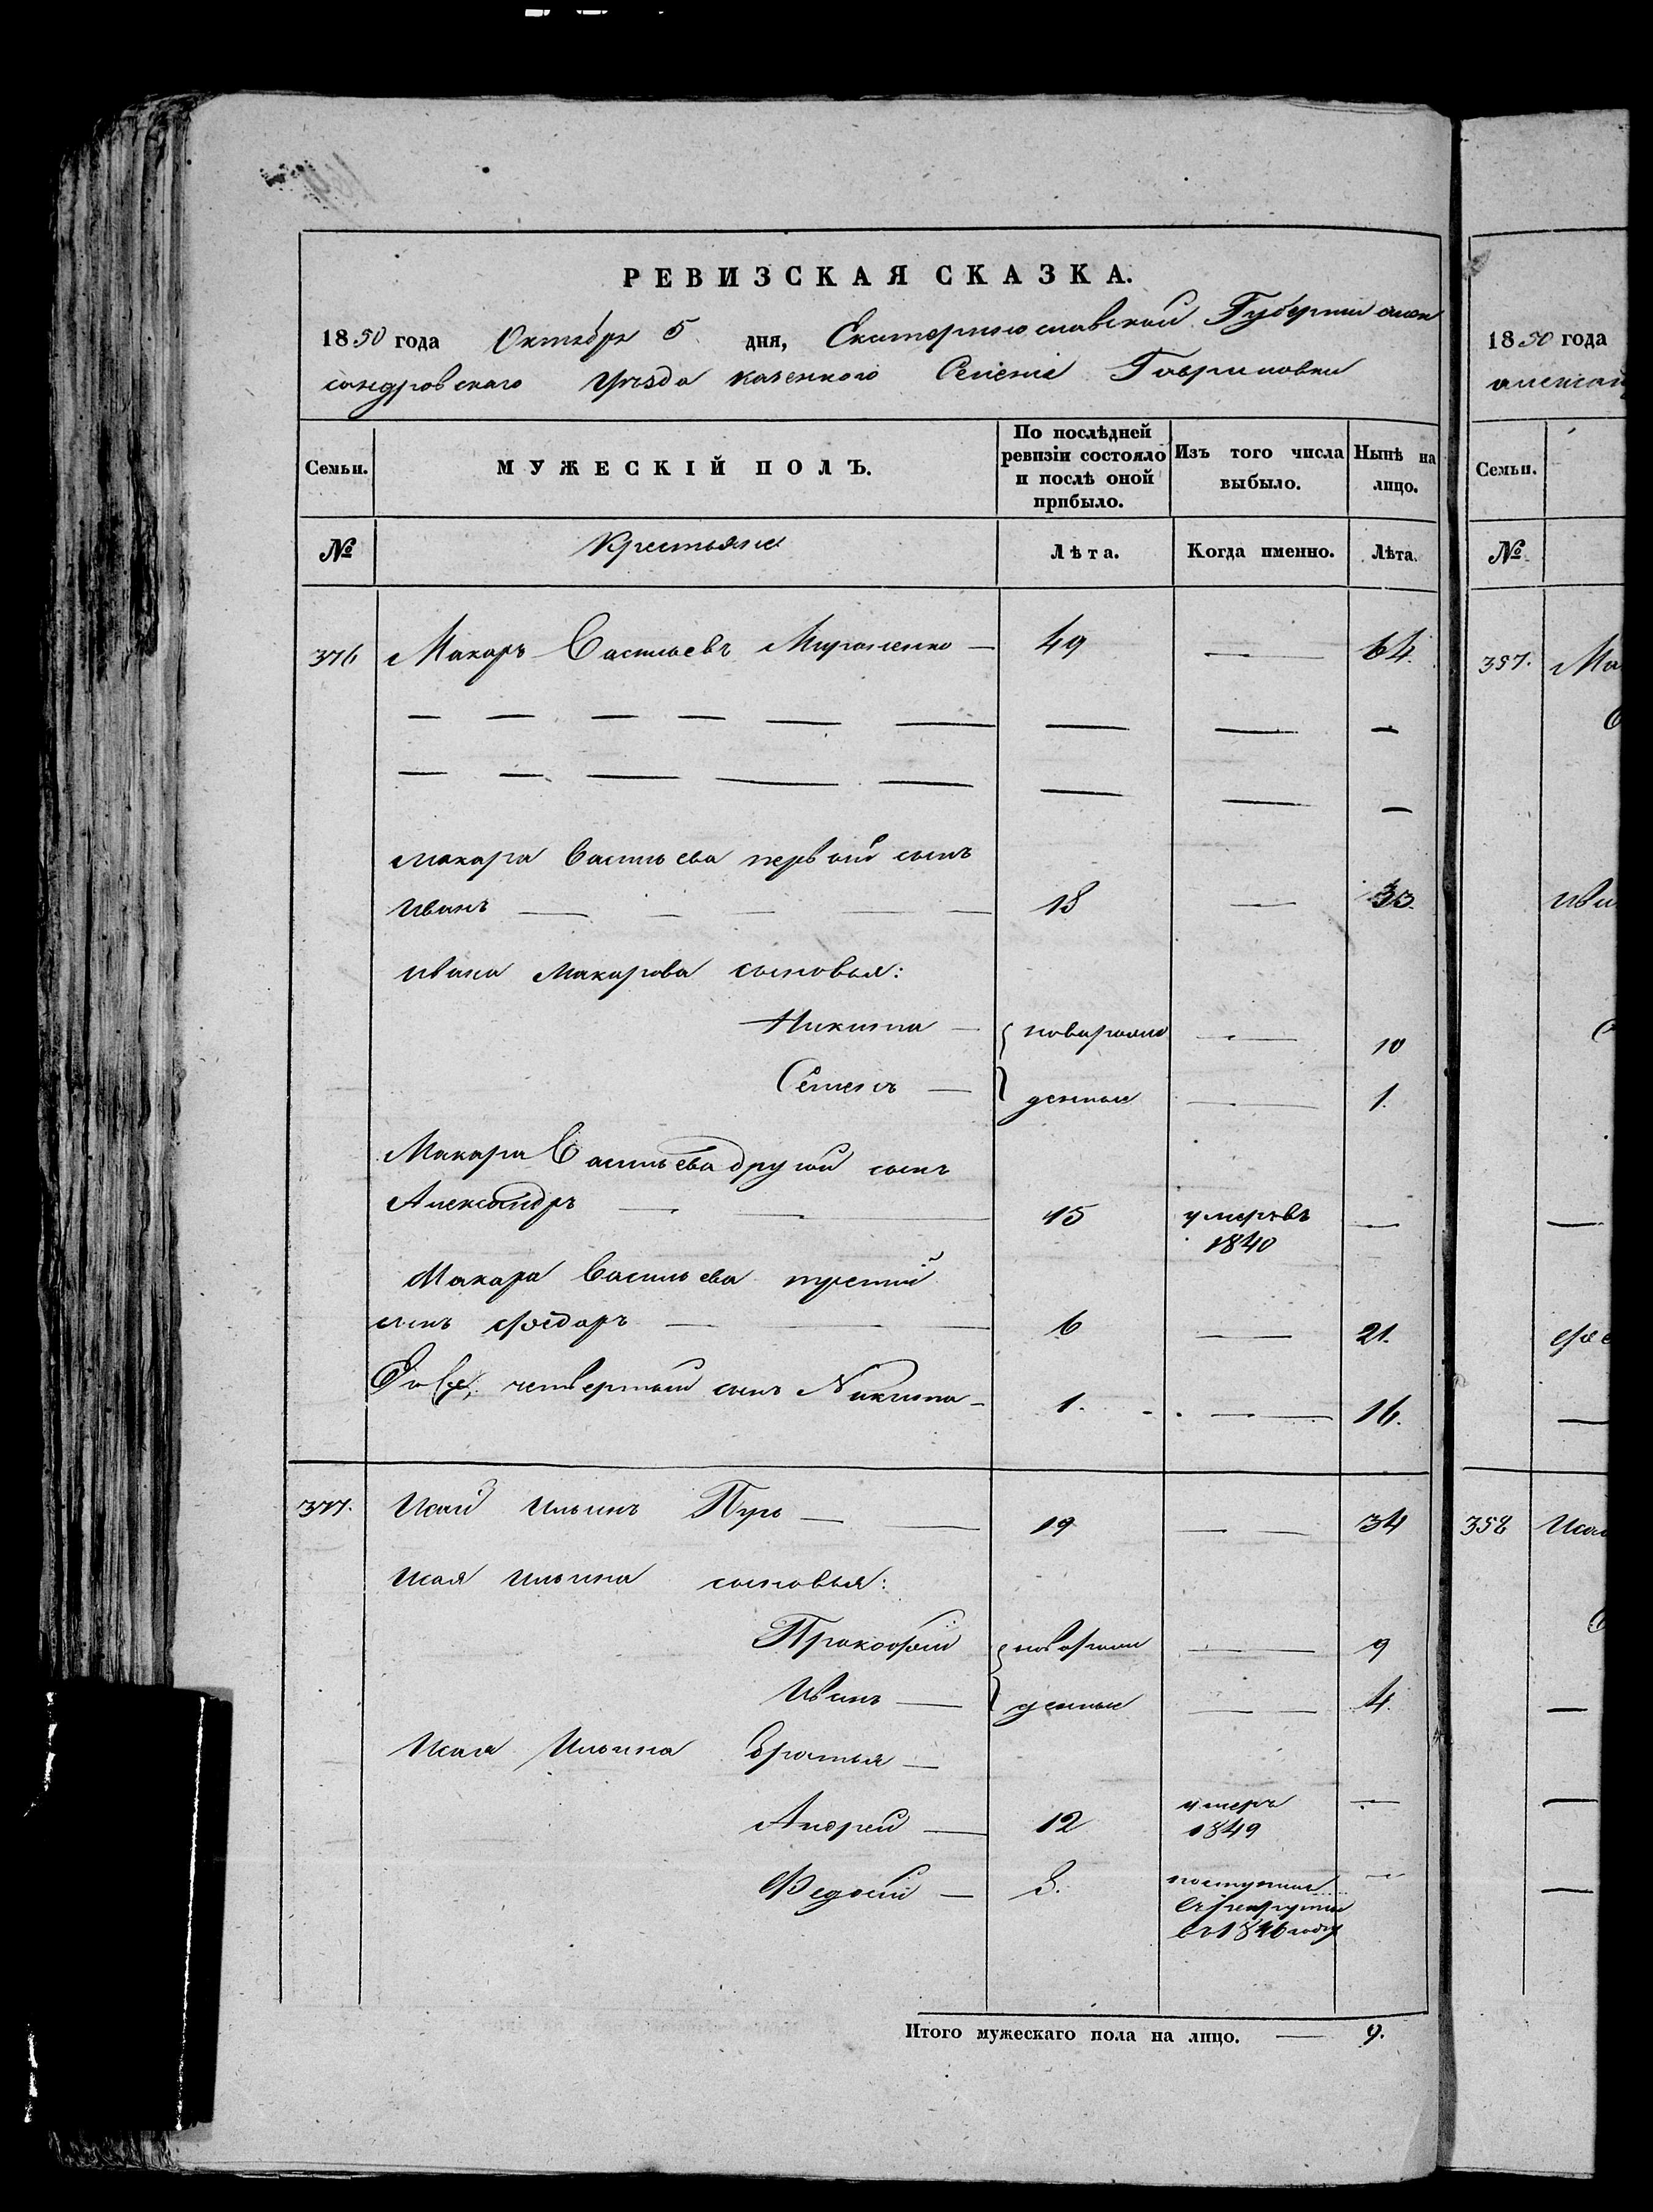 РЕВИЗСКАЯ СКАЗКА.
1850 года Октября 5 дня, Екатеринославской Губернии алек
сандровскаго Уѣзда казенного Селенія Гавриловки
Семьи.
МУЖЕСКІЙ ПОЛЪ.
По послѣдней ревизіи состояло и послѣ оной прибыло.
Изъ того числа выбыло.
Нынѣ на лицо.
№
Крестьяне
Лѣта.
Когда именно.
Лѣта.
376 Макаръ Васильевъ Мироненко — 49 — 64.
Макара Васильева первый сынъ
Иванъ — 18 — 33.
Ивана Макарова сыновья:
Никита — новорож — 10
Семенъ — денные — 1.
Макара Васильева другой сынъ
Александръ — 15 умеръ въ —
1840
Макара Васильева третій
сынъ Ѳедоръ — 6 — 21.
четвертый сынъ Никита — 1. — 16.
377. Исай Ильинъ Пугь — 19 — 34
Исая Ильина сыновья:
Прокофій новорож — 9
Иванъ — денные — 4.
Исая Ильина братья —
Андрей — 12 умеръ —
1849
Федосій — 3. поступилъ —
въ рекруты
въ 1846 году
Итого мужескаго пола на лицо. — 9.
1850 года
алексан
Семьи.
№
357. Ма
Ива
358 Иса